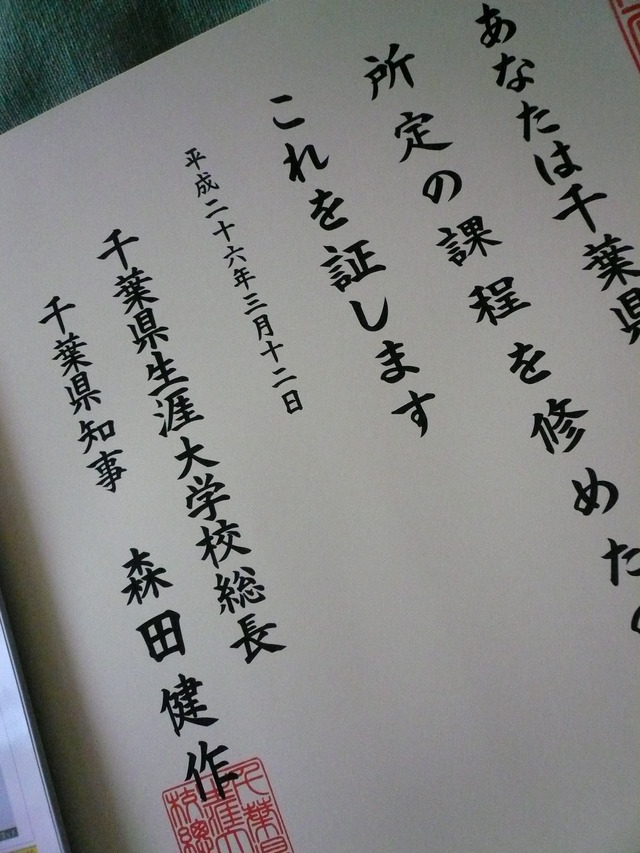 あなたは千葉県
所定の課程を修めた
これを証します
平成二十六年三月十二日
千葉県生涯大学校総長
千葉県知事 森田健作